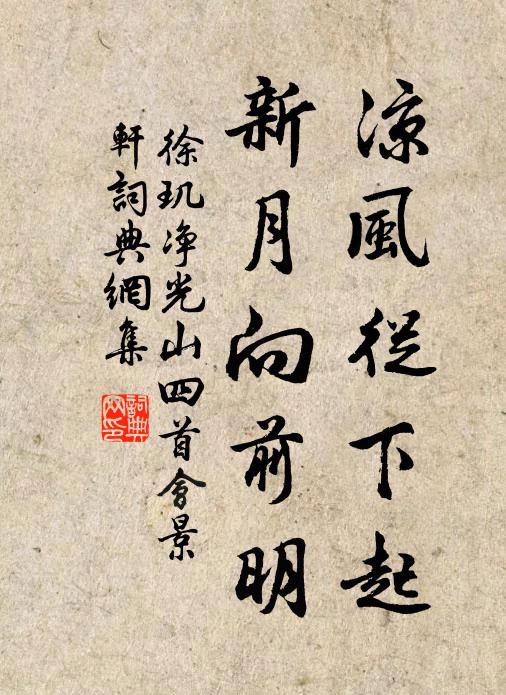 涼風從下起
新月向前明
徐玑净光山四首會景
軒詞典網集
詞典网印